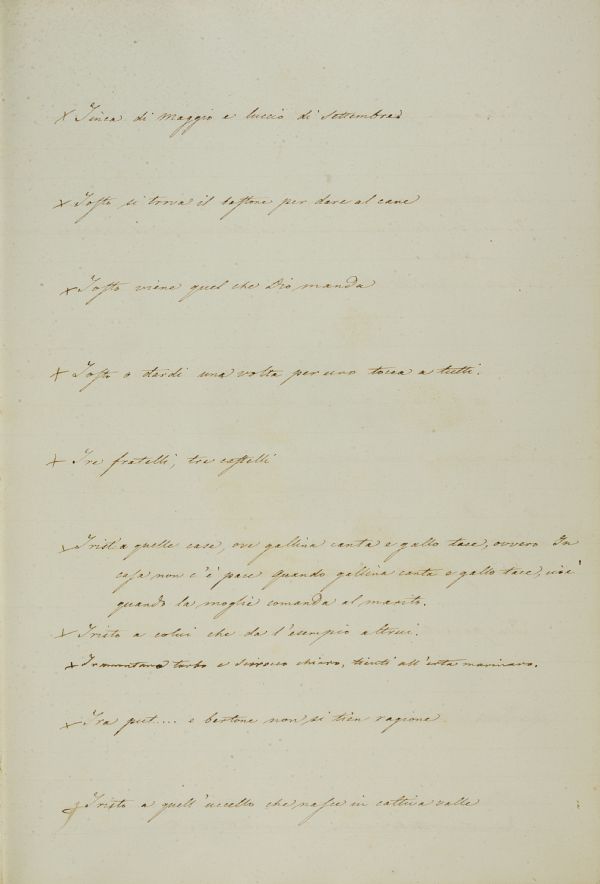 x Tinca di Maggio e luccio di Settembre
x Tosto si trova il bastone per dare al cane
x Tosto viene quel che Dio manda
x Tosto o tardi una volta per uno tocca a tutti.
x Tre fratelli, tre castelli
x Trist'a quelle case, ove gallina canta e gallo tace, ovvero In
casa non c'è pace quando gallina canta e gallo tace, cioè
quando la moglie comanda al marito.
x Tristo a colui che da l'esempio altrui.
x Tramontana torbo e Scirocco chiaro, tienti all'erta marinaro.
x Tra put.... e bertone non si tien ragione
x Tristo a quell'uccello che nasce in cattiva valle